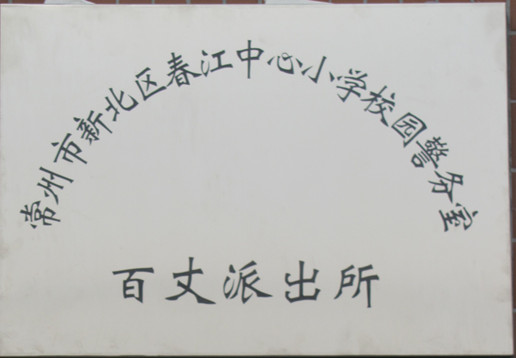 常州市新北区春江中心小学校园警务室
百丈派出所